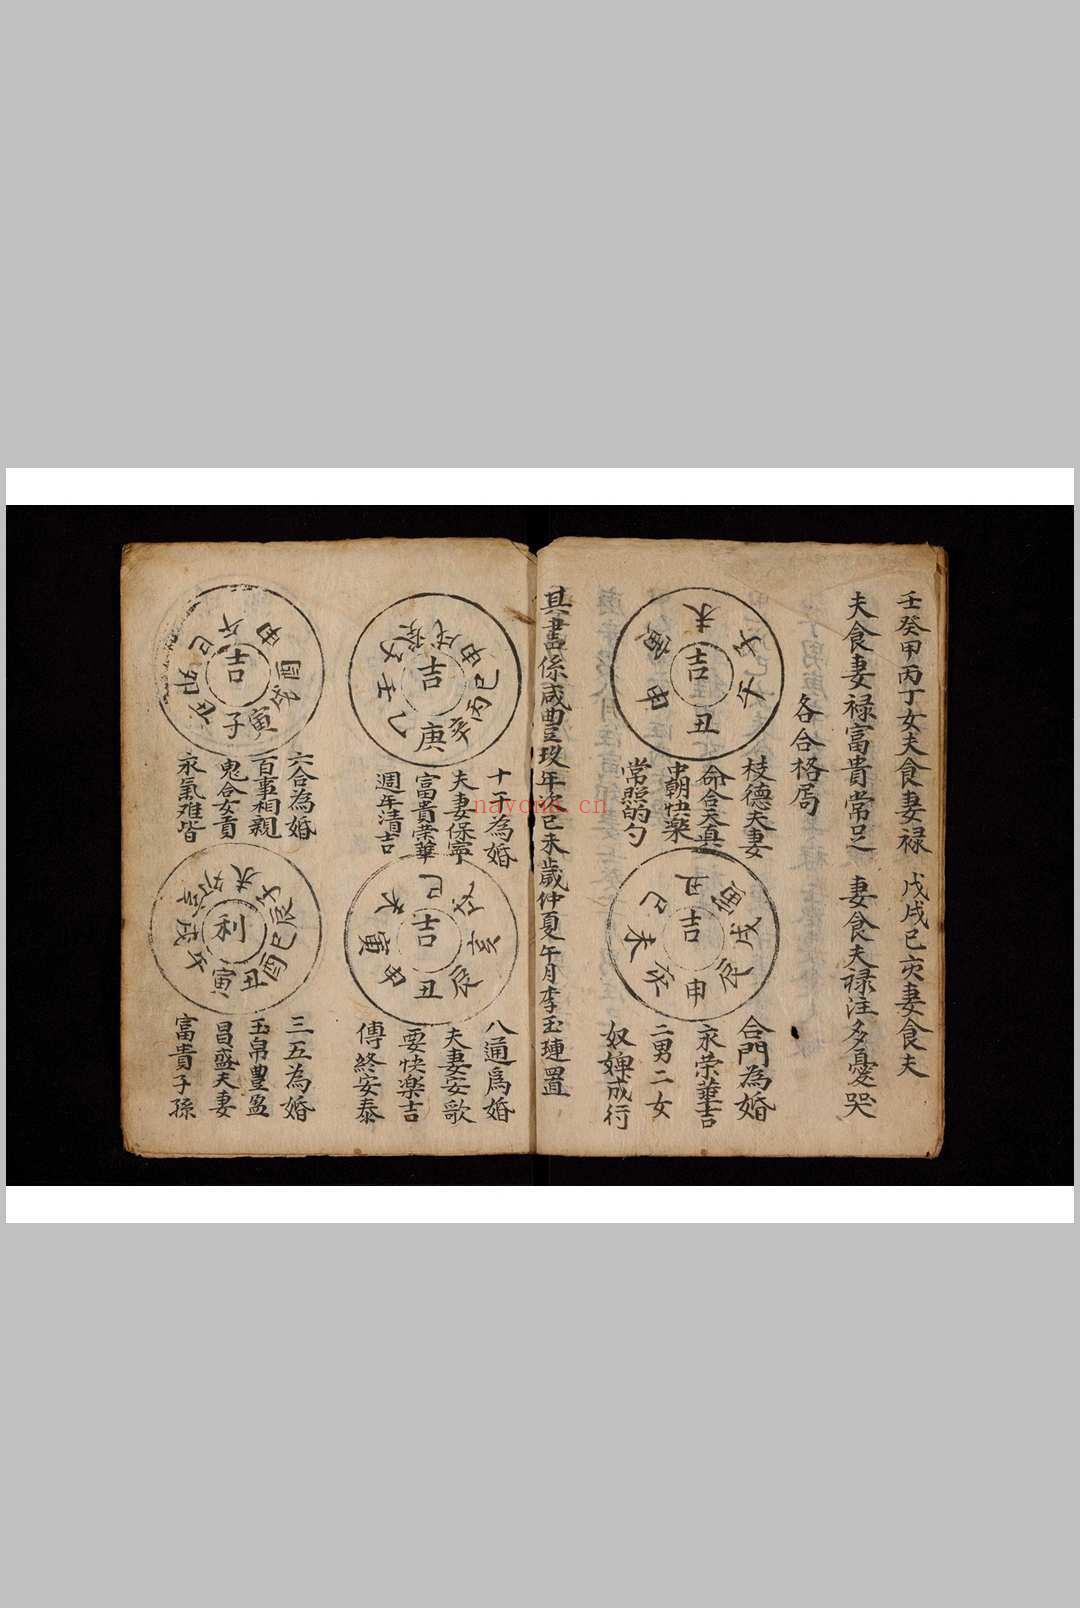 壬癸甲丙丁女夫食妻禄 戊戌己亥妻食夫
夫食妻禄富貴常足 妻食夫禄注多憂哭
各合格局
吉
未
子
午
丑
申
寅
枝德夫妻
命合天真
中朝快樂
常照的勺
吉
丑
寅
戌
申
未
巳
合門為婚
永荣華吉
二男二女
奴婢成行
其書係咸豐玖年次己未歲仲夏午月李玉璉置
吉
戌
申
巳
丙
癸
庚
乙
壬
十干為婚
夫妻保寧
富貴荣華
週年清吉
吉
巳
亥
丑
申
寅
未
八通為婚
夫妻安歌
要快楽吉
傅終安泰
吉
午
申
酉
寅
子
卯
巳
六合為婚
百事相親
鬼合女貢
永氣难皆
利
未
子
辰
巳
酉
丑
寅
午
戌
三五為婚
玉帛豊盈
昌盛夫妻
富貴子孫
nayona.cn